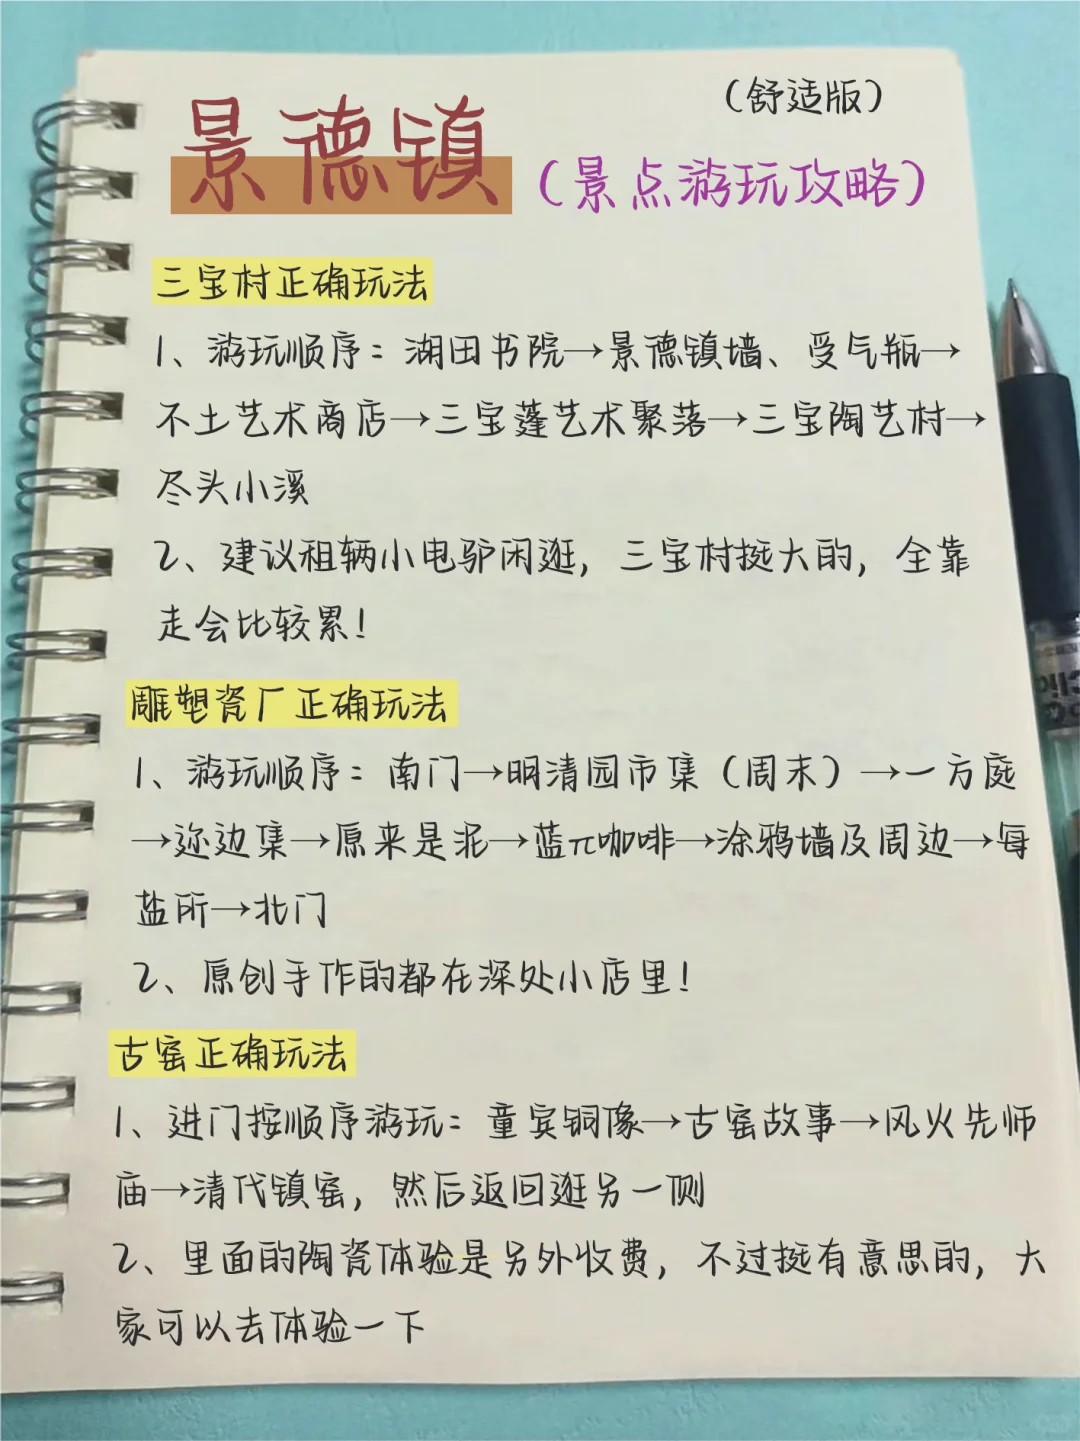 （舒适版）
景德镇
（景点游玩攻略）
三宝村正确玩法
1、游玩顺序：湖田书院→景德镇墙、受气瓶→
不土艺术商店→三宝蓬艺术聚落→三宝陶艺村→
尽头小溪
2、建议租辆小电驴闲逛，三宝村挺大的，全靠
走会比较累！
雕塑瓷厂正确玩法
1、游玩顺序：南门→明清园市集（周末）→一方庭
→迩边集→原来是泥→蓝π咖啡→涂鸦墙及周边→每
盐所→北门
2、原创手作的都在深处小店里！
古窑正确玩法
1、进门按顺序游玩：童宾铜像→古窑故事→风火先师
庙→清代镇窑，然后返回逛另一侧
2、里面的陶瓷体验是另外收费，不过挺有意思的，大
家可以去体验一下